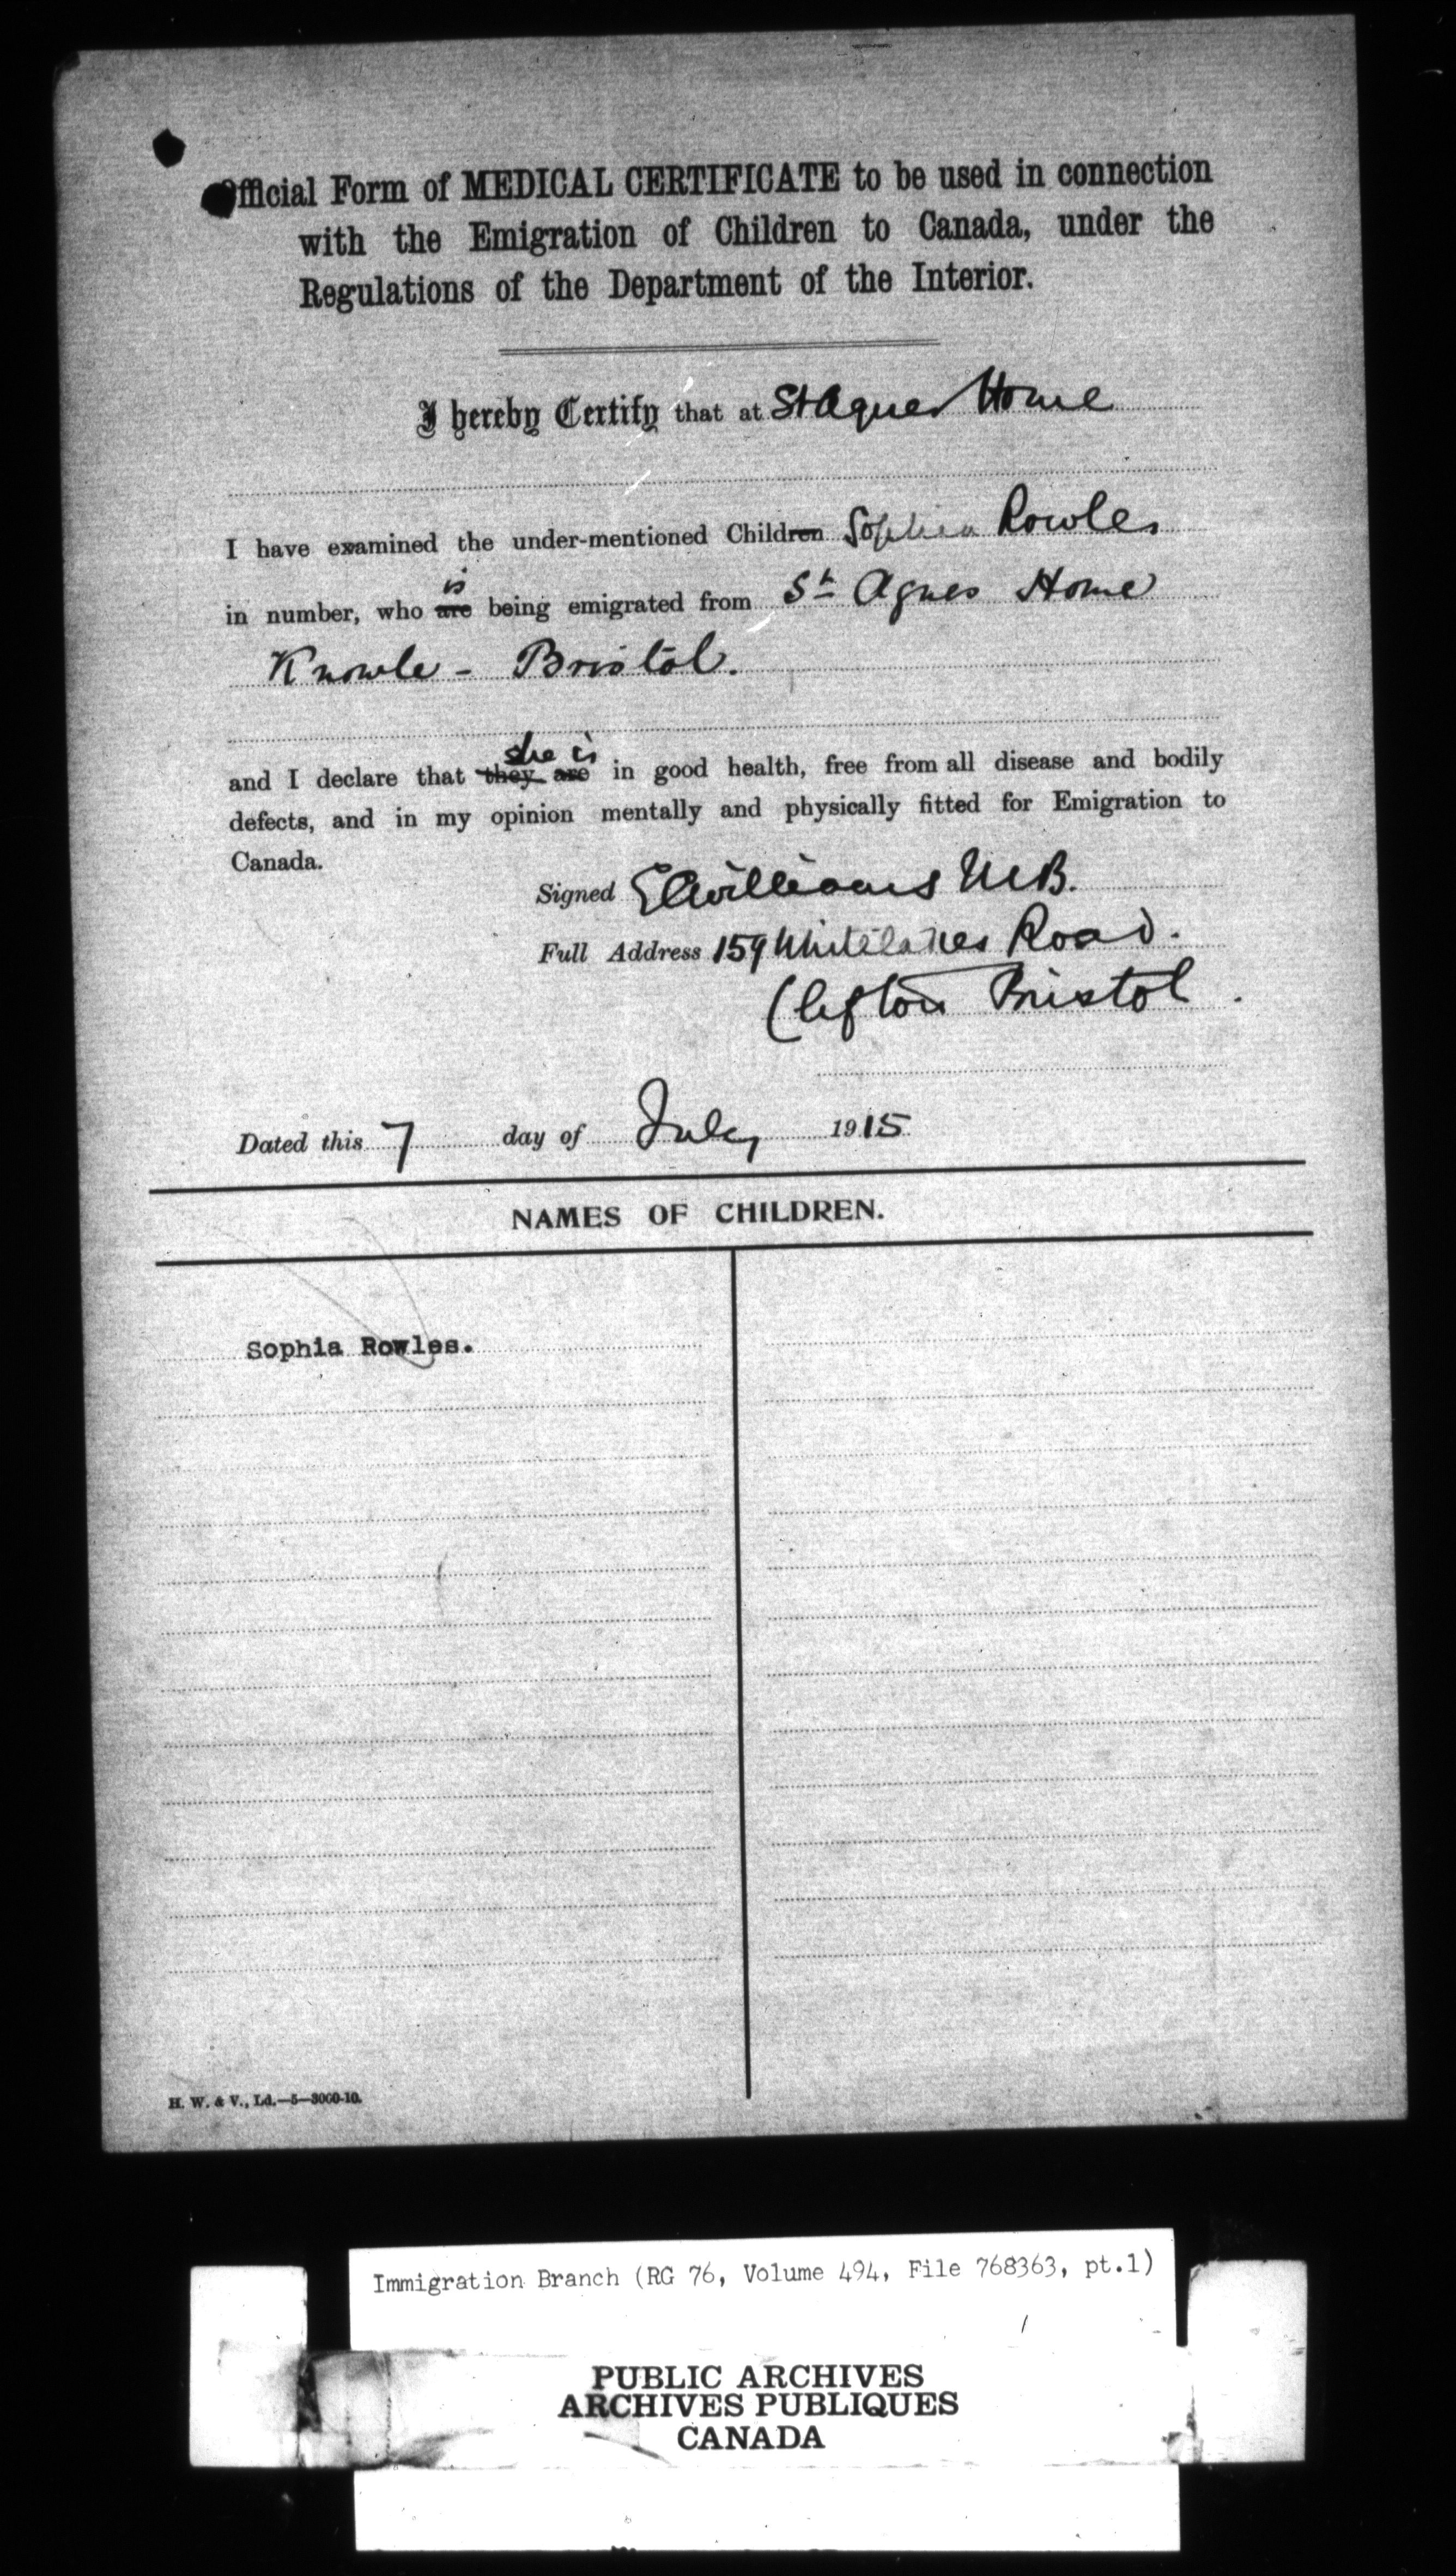 Official Form of MEDICAL CERTIFICATE to be used in connection
with the Emigration of Children to Canada, under the
Regulations of the Department of the Interior.
I hereby Certify that at St Agnes Home
I have examined the under-mentioned Children Sophia Rowles
is
in number, who are being emigrated from St Agnes Home
Knowle - Bristol.
she is
and I declare that they are in good health, free from all disease and bodily
defects, and in my opinion mentally and physically fitted for Emigration to
Canada.
Signed Williams M.B.
Full Address 159 Whiteladies Road.
Clifton Bristol.
Dated this 7 day of July 1915
NAMES OF CHILDREN.
Sophia Rowles.
H. W. & V., Ld.—5—3000-10.
Immigration Branch (RG 76, Volume 494, File 768363, pt.1)
PUBLIC ARCHIVES
ARCHIVES PUBLIQUES
CANADA